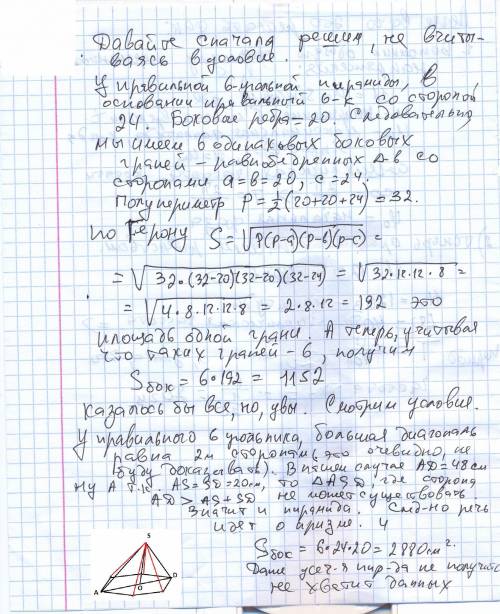 Давайте сначала решим, не вчиты-
ваясь в условие.
У правильной 6-угольной пирамиды, в
основании правильный 6-к со стороной
24. Боковые ребра = 20. Следовательно,
мы имеем 6 одинаковых боковых
граней – равнобедренных Δ-в со
сторонами a=b=20, c=24.
Полупериметр P = ½(20+20+24) = 32.
по Герону S = √P(P-a)(P-b)(P-c) =
= √32·(32-20)(32-20)(32-24) = √32·12·12·8 =
= √4·8·12·12·8 = 2·8·12 = 192 это
площадь одной грани. А теперь, учитывая
что таких граней – 6, получим
Sбок = 6·192 = 1152
казалось бы все, но, увы. Смотрим условие.
У правильного 6 угольника, большая диагональ
равна 2м сторонам, это очевидно, не
буду доказывать). В нашем случае AD=48см
ну а т.к. AS=SD=20см, то ΔASD, где сторона
AD > AS+SD не может существовать
Значит и пирамида. След-но речь
идет о призме. и
Sбок = 6·24·20 = 2880см².
Даже усеч-я пир-да не получится
не хватит данных
S
A
O
D